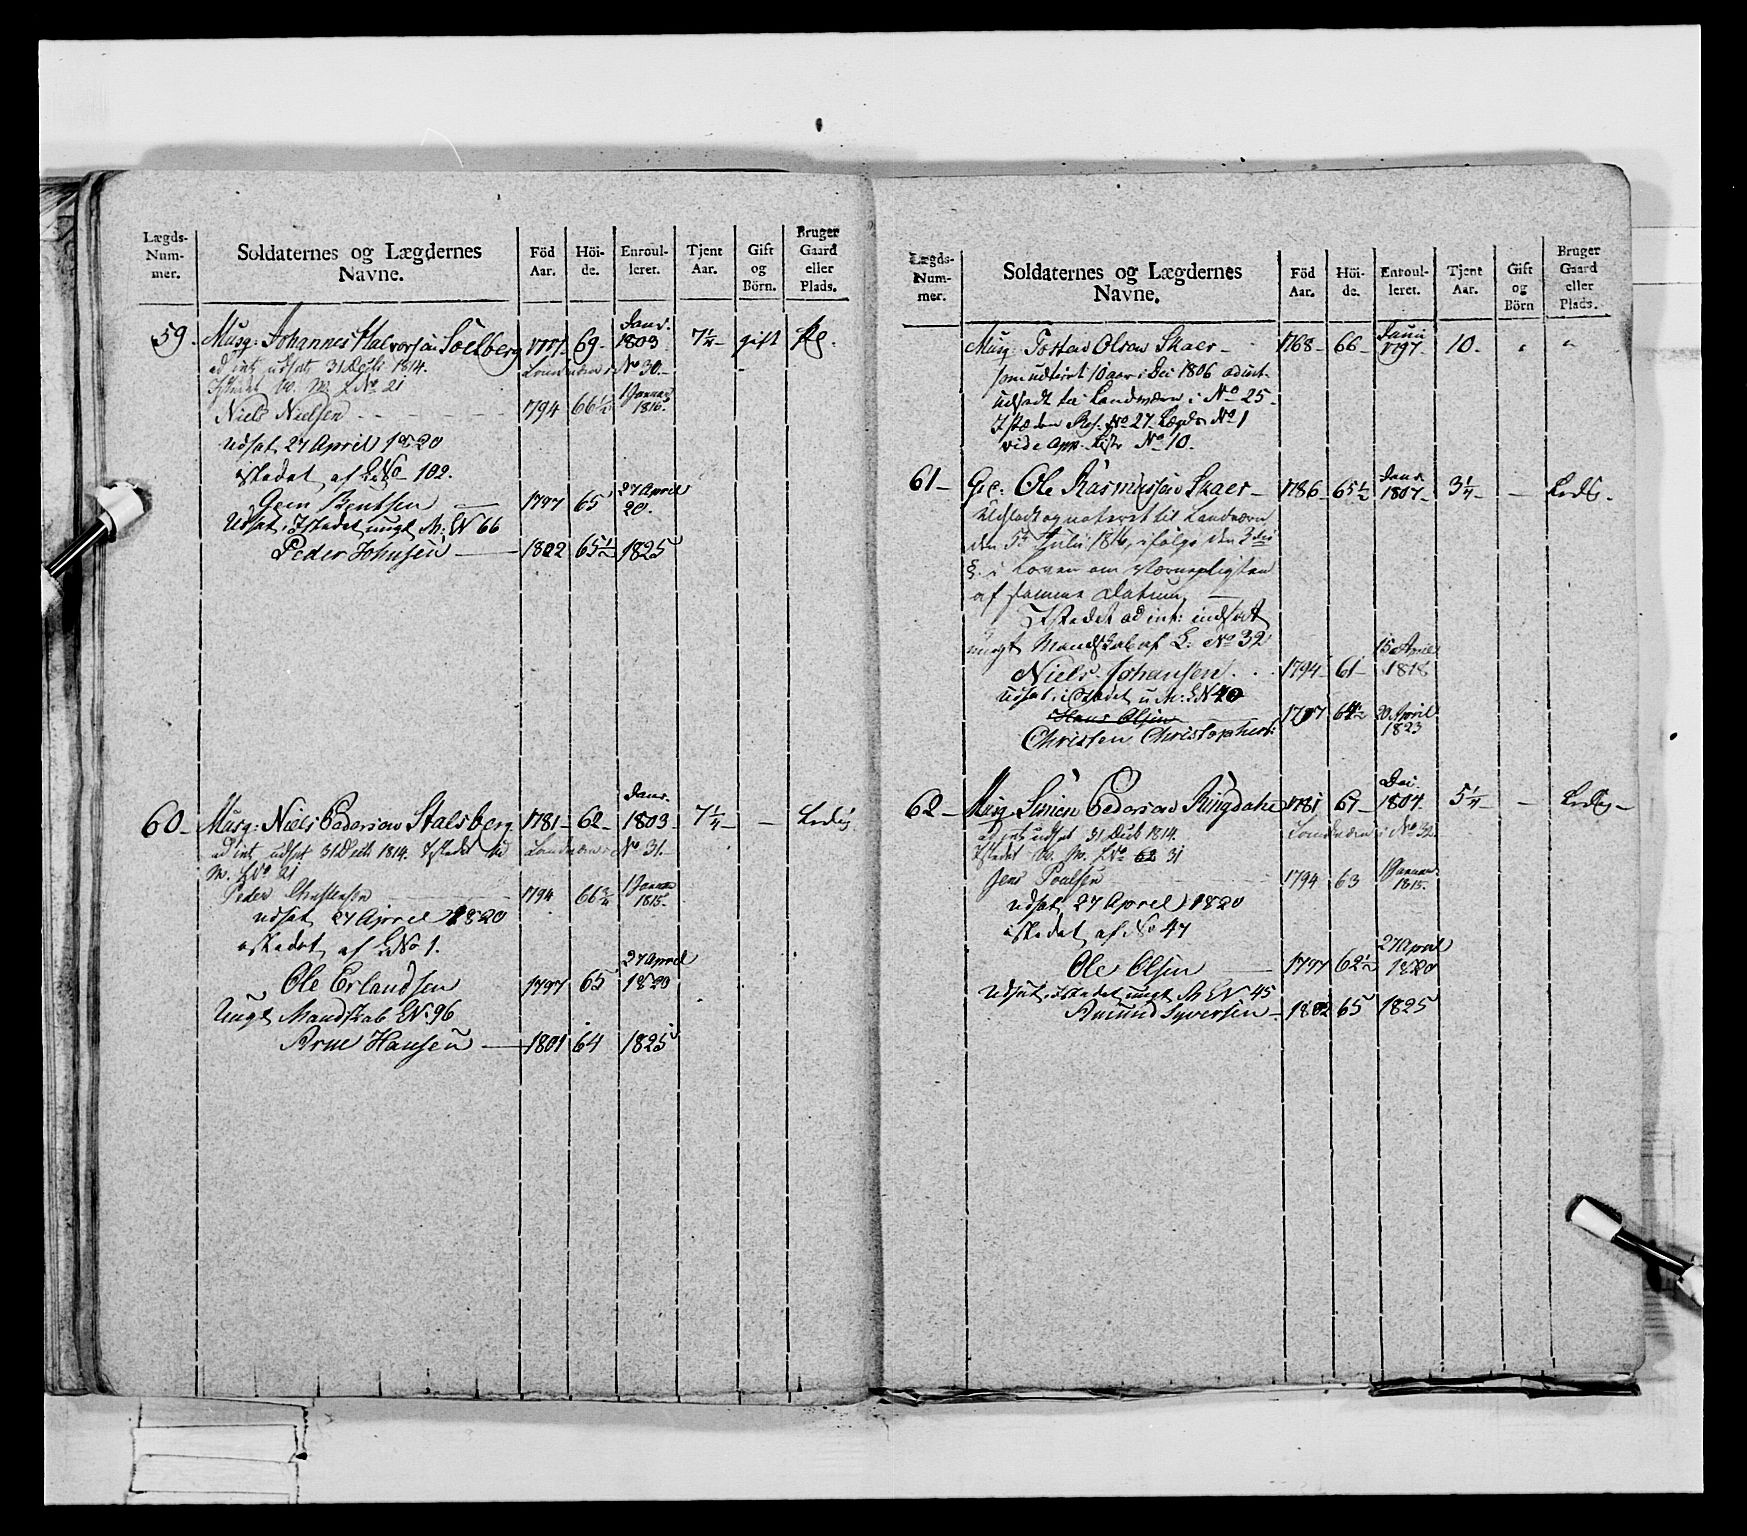 Lægds-Num-mer. Soldaternes og Lægdernes Navne. Född Aar. Höi-de. Enroul-leret. Tjent Aar. Gift og Börn. Bruger Gaard eller Plads.
59. Musq: Johannes Halvorsøn Soelberg 1777. 69. Janv. 1803 7 1/4 gift
ad int. udsat 31 Decb 1814. Landværn No 30.
Istedet W. M. LNo 21
Niels Nielsen 1794 66 1/2 1 Januar 1816.
Udsat 27 April 1820
istedet af LNo 102.
Bentsen 1797 65 27 April 20.
Udsat, Istedet ungt M: LN 66
Peder Johnsen 1802 65 1/2 1825
60. Musq: Niels Pedersøn Stalsberg 1781 62 Janv. 1803 7 1/4 Ledig
ad int. udsat 31 Decb. 1814. Istedet Landværn No 31.
M. LNo 21
Peder Christensen 1794 66 3/4 1 Januar 1815.
udsat 27 April 1820
istedet af LNo 1.
Ole Erlandsen 1797 65 27 April 1820
Ungt Mandskab LN. 96
Arne Hansen 1801 64 1825
Lægds-Num-mer. Soldaternes og Lægdernes Navne. Föd Aar. Höi-de. Enroul-leret. Tjent Aar. Gift og Börn Bruger Gaard eller Plads.
Musq: Tosten Olsøn Skaer 1768 66 Junii 1797. 10. " "
som udtient 10 aar i Dec 1806 ad int.
udsadt til Landværn i No 25
Istæden Res. No 27 Lægds No 1
vide App. Liste No 10.
61 Ole Rasmusøn Skaer 1786 65 1/2 Janv. 1807 3 1/4 Ledig
Udsadt og noteret til Landværn
den 5te Julii 1816, ifølge den 3die
§. i Loven om Værnepligten
af samme Datum
Istedet ad int: indsat
ungt Mandskab af L. No 32
Niels Johansen 1794 61 15 April 1818
Udsat, istedet u. M: LN 40
Hans Olsen
Christen Christophers: 1797 64 1/2 20 April 1823
62 Musq Simen Pedersøn Ringdahl 1781 67 Dec 1804. 5 1/4 Ledig
ad int: udsat 31 Decb 1814. Landværn i No 32
Istedet W. M. LNo 62 31
Jens Poulsen 1794 63 1 Januar 1815.
udsat 27 April 1820
istedet af No 47
Ole Olsen 1797 62 1/2 27 April 1820
Udsat, istedet ungt M LN 45
Amund Syversen 1802 65 1825